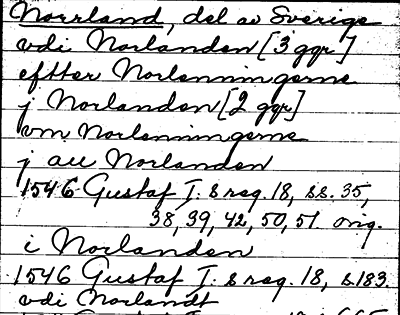 Norrland, del av Sverige
vdi Norlanden [3 ggr]
efftter Norlenningerne
j Norlanden [2 ggr]
vm Norlenningerne
j au Norlanden
1546 Gustaf I:s reg. 18, ss. 35,
38, 39, 42, 50, 51. orig.
i Norlanden
1546 Gustaf I:s reg. 18, s. 183.
vdi Norlandt